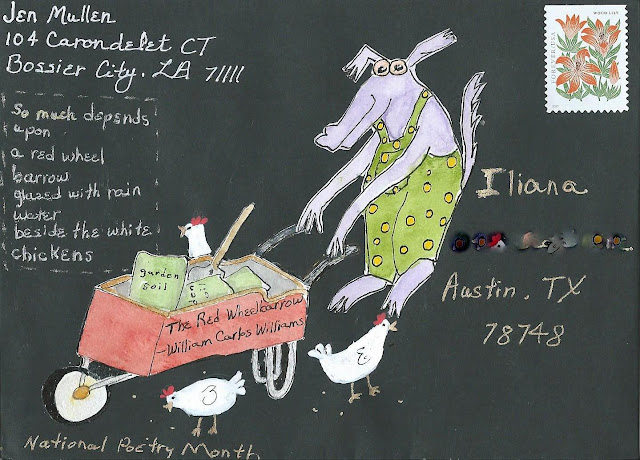 Jen Mullen
104 Carondelet CT
Bossier City, LA 71111
So much depends
upon
a red wheel
barrow
glazed with rain
water
beside the white
chickens
Iliana
Austin, TX
78748
garden
soil
The Red Wheelbarrow
-William Carlos Williams
National Poetry Month